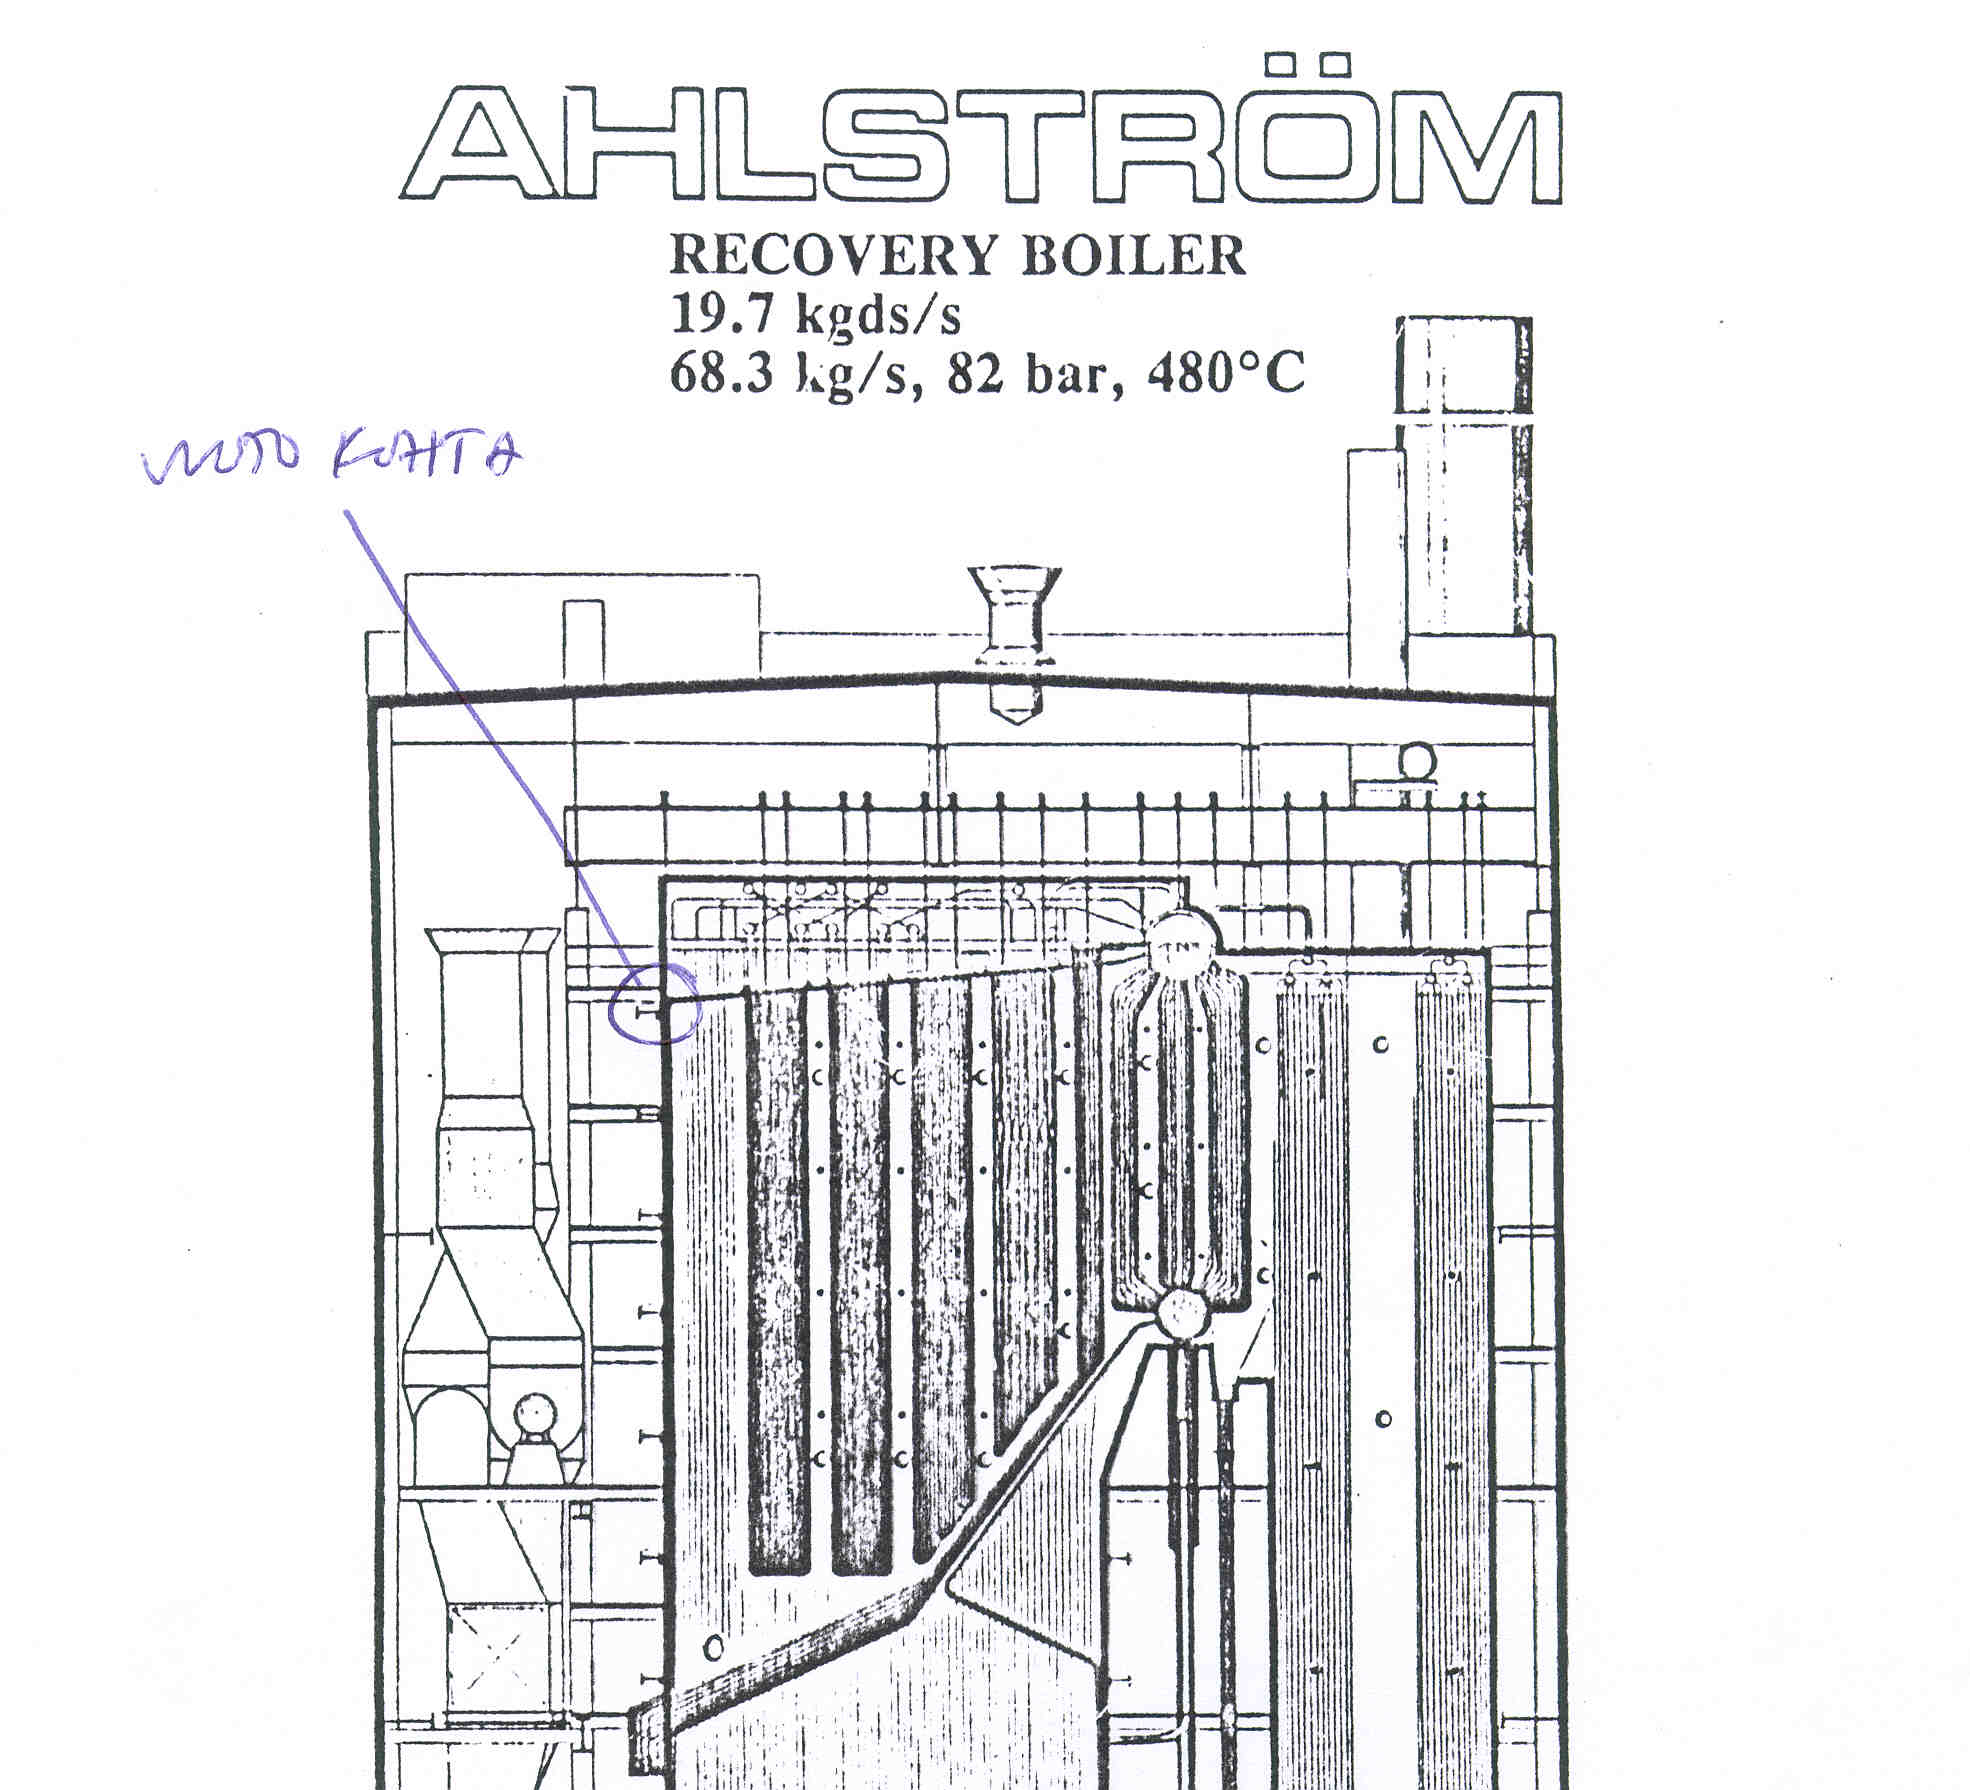 AHLSTRÖM
RECOVERY BOILER
19.7 kgds/s
68.3 kg/s, 82 bar, 480°C
VUOTO KOHTA